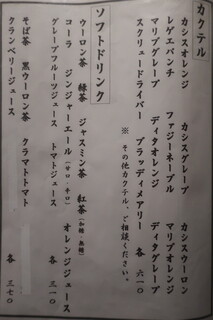 カクテル
カシスオレンジ　カシスグレープ　カシスウーロン
レゲエパンチ　ファジーネーブル　マリブオレンジ
マリブグレープ　ディタオレンジ　ディタグレープ
スクリュードライバー　ブラッディメアリー　各 六一〇
※ その他カクテル、ご相談ください。
ソフトドリンク
ウーロン茶　緑茶　ジャスミン茶　紅茶（加糖・無糖）
コーラ　ジンジャーエール（甘口・辛口）　オレンジジュース
グレープフルーツジュース　トマトジュース　各 三一〇
そば茶　黒ウーロン茶　クラマトトマト
クランベリージュース　各 三七〇